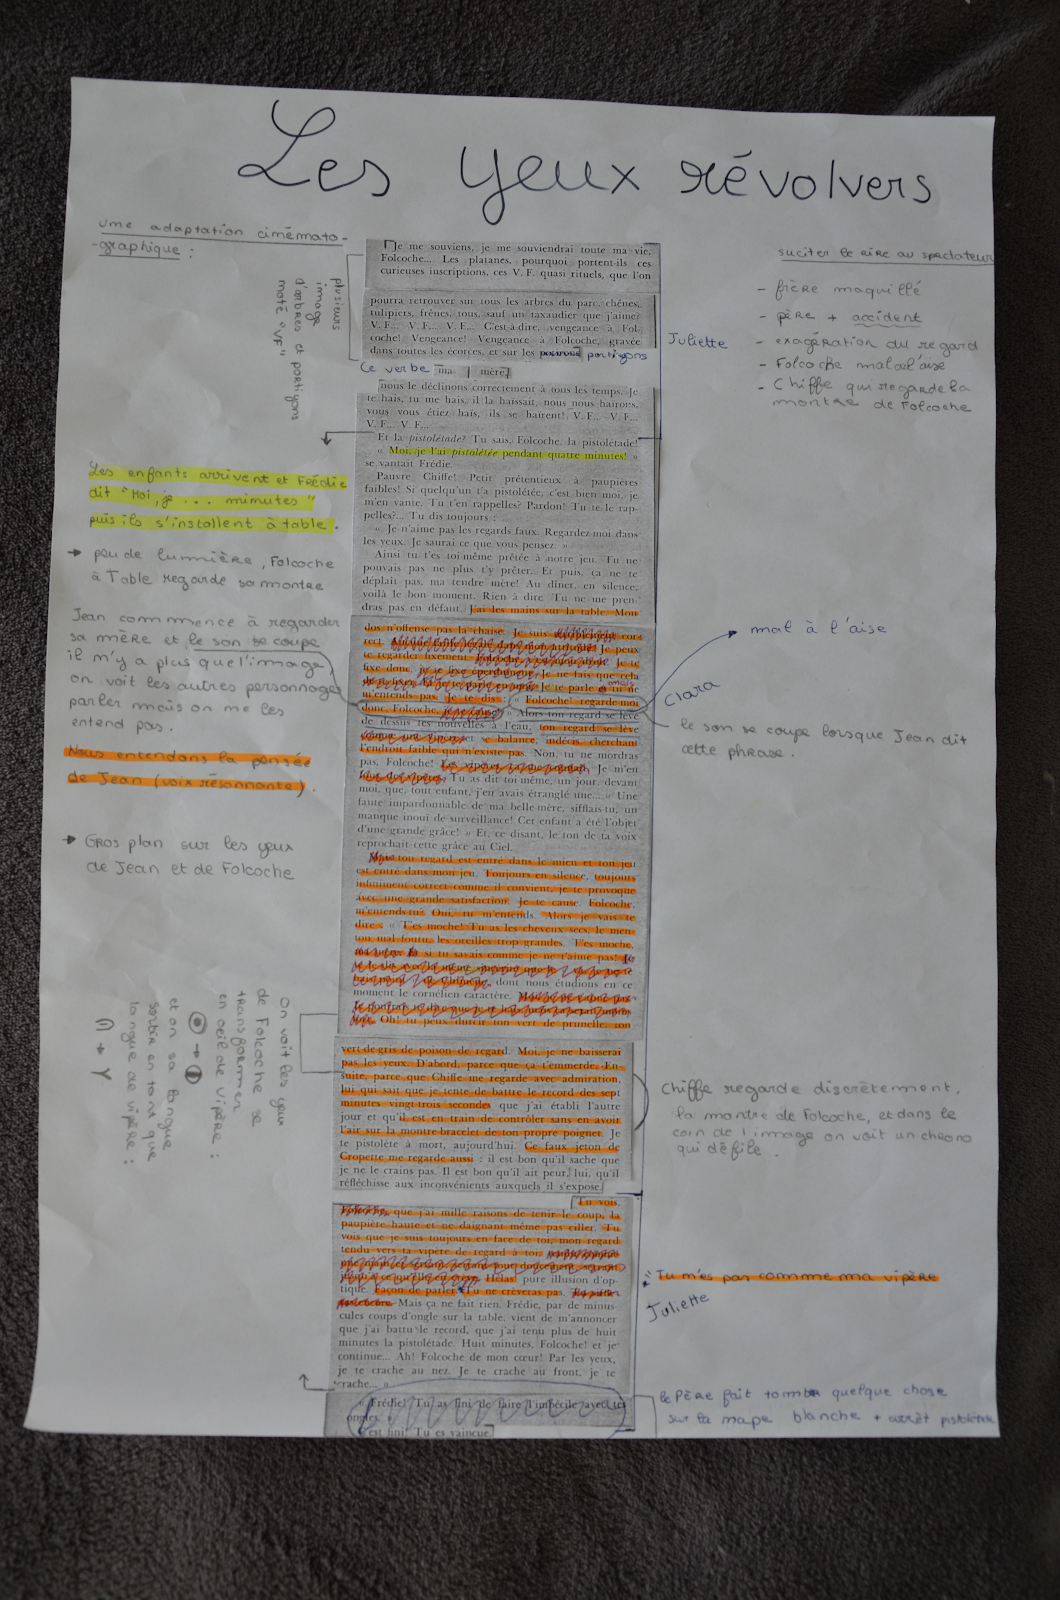 Les yeux révolvers
une adaptation cinémato-
-graphique :
plusieurs
image
d'arbres et portiçons
moté "VF"
Les enfants arrivent et Frédie
dit "Moi, je . . . minutes"
puis ils s'installent à table.
→ peu de lumière, Folcoche
à Table regarde sa montre
Jean commence à regarder
sa mère et le son se coupe
il n'y a plus que l'image
on voit les autres personnages
parler mais on ne les
entend pas.
Nous entendons la pensée
de Jean (voix résonnante).
→ Gros plan sur les yeux
de Jean et de Folcoche
On voit les yeux
de Folcoche se
transformer
en oeil de vipère :
et on sa langue
sortir en tant que
langue de vipère :
Je me souviens, je me souviendrai toute ma vie,
Folcoche... Les platanes, pourquoi portent-ils ces
curieuses inscriptions, ces V. F. quasi rituels, que l'on
pourra retrouver sur tous les arbres du parc, chênes,
tulipiers, frênes, tous, sauf un taxaudier que j'aime?
V. F... V. F... V. F... C'est-à-dire, vengeance à Fol-
coche! Vengeance! Vengeance à Folcoche, gravée
dans toutes les écorces, et sur les portiçons
Le verbe ma mère,
nous le déclinons correctement à tous les temps. Je
te hais, tu me hais, il la haïssait, nous nous haïrons,
vous vous étiez haïs, ils se haïrent! V. F... V. F...
V. F... V. F...
Et la pistolétade? Tu sais, Folcoche, la pistolétade!
« Moi, je l'ai pistolétée pendant quatre minutes! »
se vantait Frédie.
Pauvre Chiffe! Petit prétentieux à paupières
faibles! Si quelqu'un t'a pistolétée, c'est bien moi, je
m'en vante. Tu t'en rappelles? Pardon! Tu te le rap-
pelles?... Tu dis toujours :
« Je n'aime pas les regards faux. Regardez-moi dans
les yeux. Je saurai ce que vous pensez. »
Ainsi tu t'es toi-même prêtée à notre jeu. Tu ne
pouvais pas ne plus t'y prêter. Et puis, ça ne te
déplaît pas, ma tendre mère! Au dîner, en silence,
voilà le bon moment. Rien à dire. Tu ne me pren-
dras pas en défaut. J'ai les mains sur la table. Mon
dos n'offense pas la chaise. Je suis cor-
rect. Je peux
te regarder fixement. Je te
fixe donc, Je ne fais que cela
Je te parle mais tu ne
m'entends pas. Je te dis : « Folcoche! regarde-moi
donc, Folcoche, » Alors ton regard se lève
de dessus tes nouilles à l'eau, ton regard se lève
et se balance, indécis, cherchant
l'endroit faible qui n'existe pas. Non, tu ne mordras
pas, Folcoche! Je m'en
Tu as dit toi-même, un jour, devant
moi, que, tout enfant, j'en avais étranglé une... « Une
faute impardonnable de ma belle-mère, sifflais-tu, un
manque inouï de surveillance! Cet enfant a été l'objet
d'une grande grâce! » Et, ce disant, le ton de ta voix
reprochait cette grâce au Ciel.
ton regard est entré dans le mien et ton jeu
est entré dans mon jeu. Toujours en silence, toujours
infiniment correct comme il convient, je te provoque
avec une grande satisfaction. Je te cause, Folcoche,
m'entends-tu? Oui, tu m'entends. Alors je vais te
dire : « T'es moche! Tu as les cheveux secs, le men-
ton mal foutu, les oreilles trop grandes. T'es moche,
si tu savais comme je ne t'aime pas!
dont nous étudions en ce
moment le cornélien caractère.
Oh! tu peux durcir ton vert de prunelle, ton
vert-de-gris de poison de regard. Moi, je ne baisserai
pas les yeux. D'abord, parce que ça t'emmerde. En-
suite, parce que Chiffe me regarde avec admiration,
lui qui sait que je tente de battre le record des sept
minutes vingt-trois secondes que j'ai établi l'autre
jour et qu'il est en train de contrôler sans en avoir
l'air sur la montre-bracelet de ton propre poignet. Je
te pistolète à mort, aujourd'hui. Ce faux jeton de
Cropette me regarde aussi : il est bon qu'il sache que
je ne le crains pas. Il est bon qu'il ait peur, lui, qu'il
réfléchisse aux inconvénients auxquels il s'expose.
Tu vois,
que j'ai mille raisons de tenir le coup, la
paupière haute et ne daignant même pas ciller. Tu
vois que je suis toujours en face de toi, mon regard
tendu vers ta vipère de regard à toi,
Hélas! pure illusion d'op-
tique. Façon de parler. Tu ne crèveras pas.
Mais ça ne fait rien. Frédie, par de minus-
cules coups d'ongle sur la table, vient de m'annoncer
que j'ai battu le record, que j'ai tenu plus de huit
minutes la pistolétade. Huit minutes, Folcoche! et je
continue... Ah! Folcoche de mon cœur! Par les yeux,
je te crache au nez. Je te crache au front, je te
crache... »
« Frédie! Tu as fini de faire l'imbécile avec tes
ongles. »
C'est fini! Tu es vaincue.
suciter le rire au spectateur
- frère maquillé
- père + accident
- exagération du regard
- Folcoche mal à l'aise
- Chiffe qui regarde la
montre de Folcoche
Juliette
mal à l'aise
Clara
le son se coupe lorsque Jean dit
cette phrase.
Chiffe regarde discrètement.
la montre de Folcoche, et dans le
coin de l'image on voit un chrono
qui défile.
"Tu m'es pas comme ma vipère
Juliette
le PÈRE fait tomber quelque chose
sur la nape blanche + arrêt pistolétade